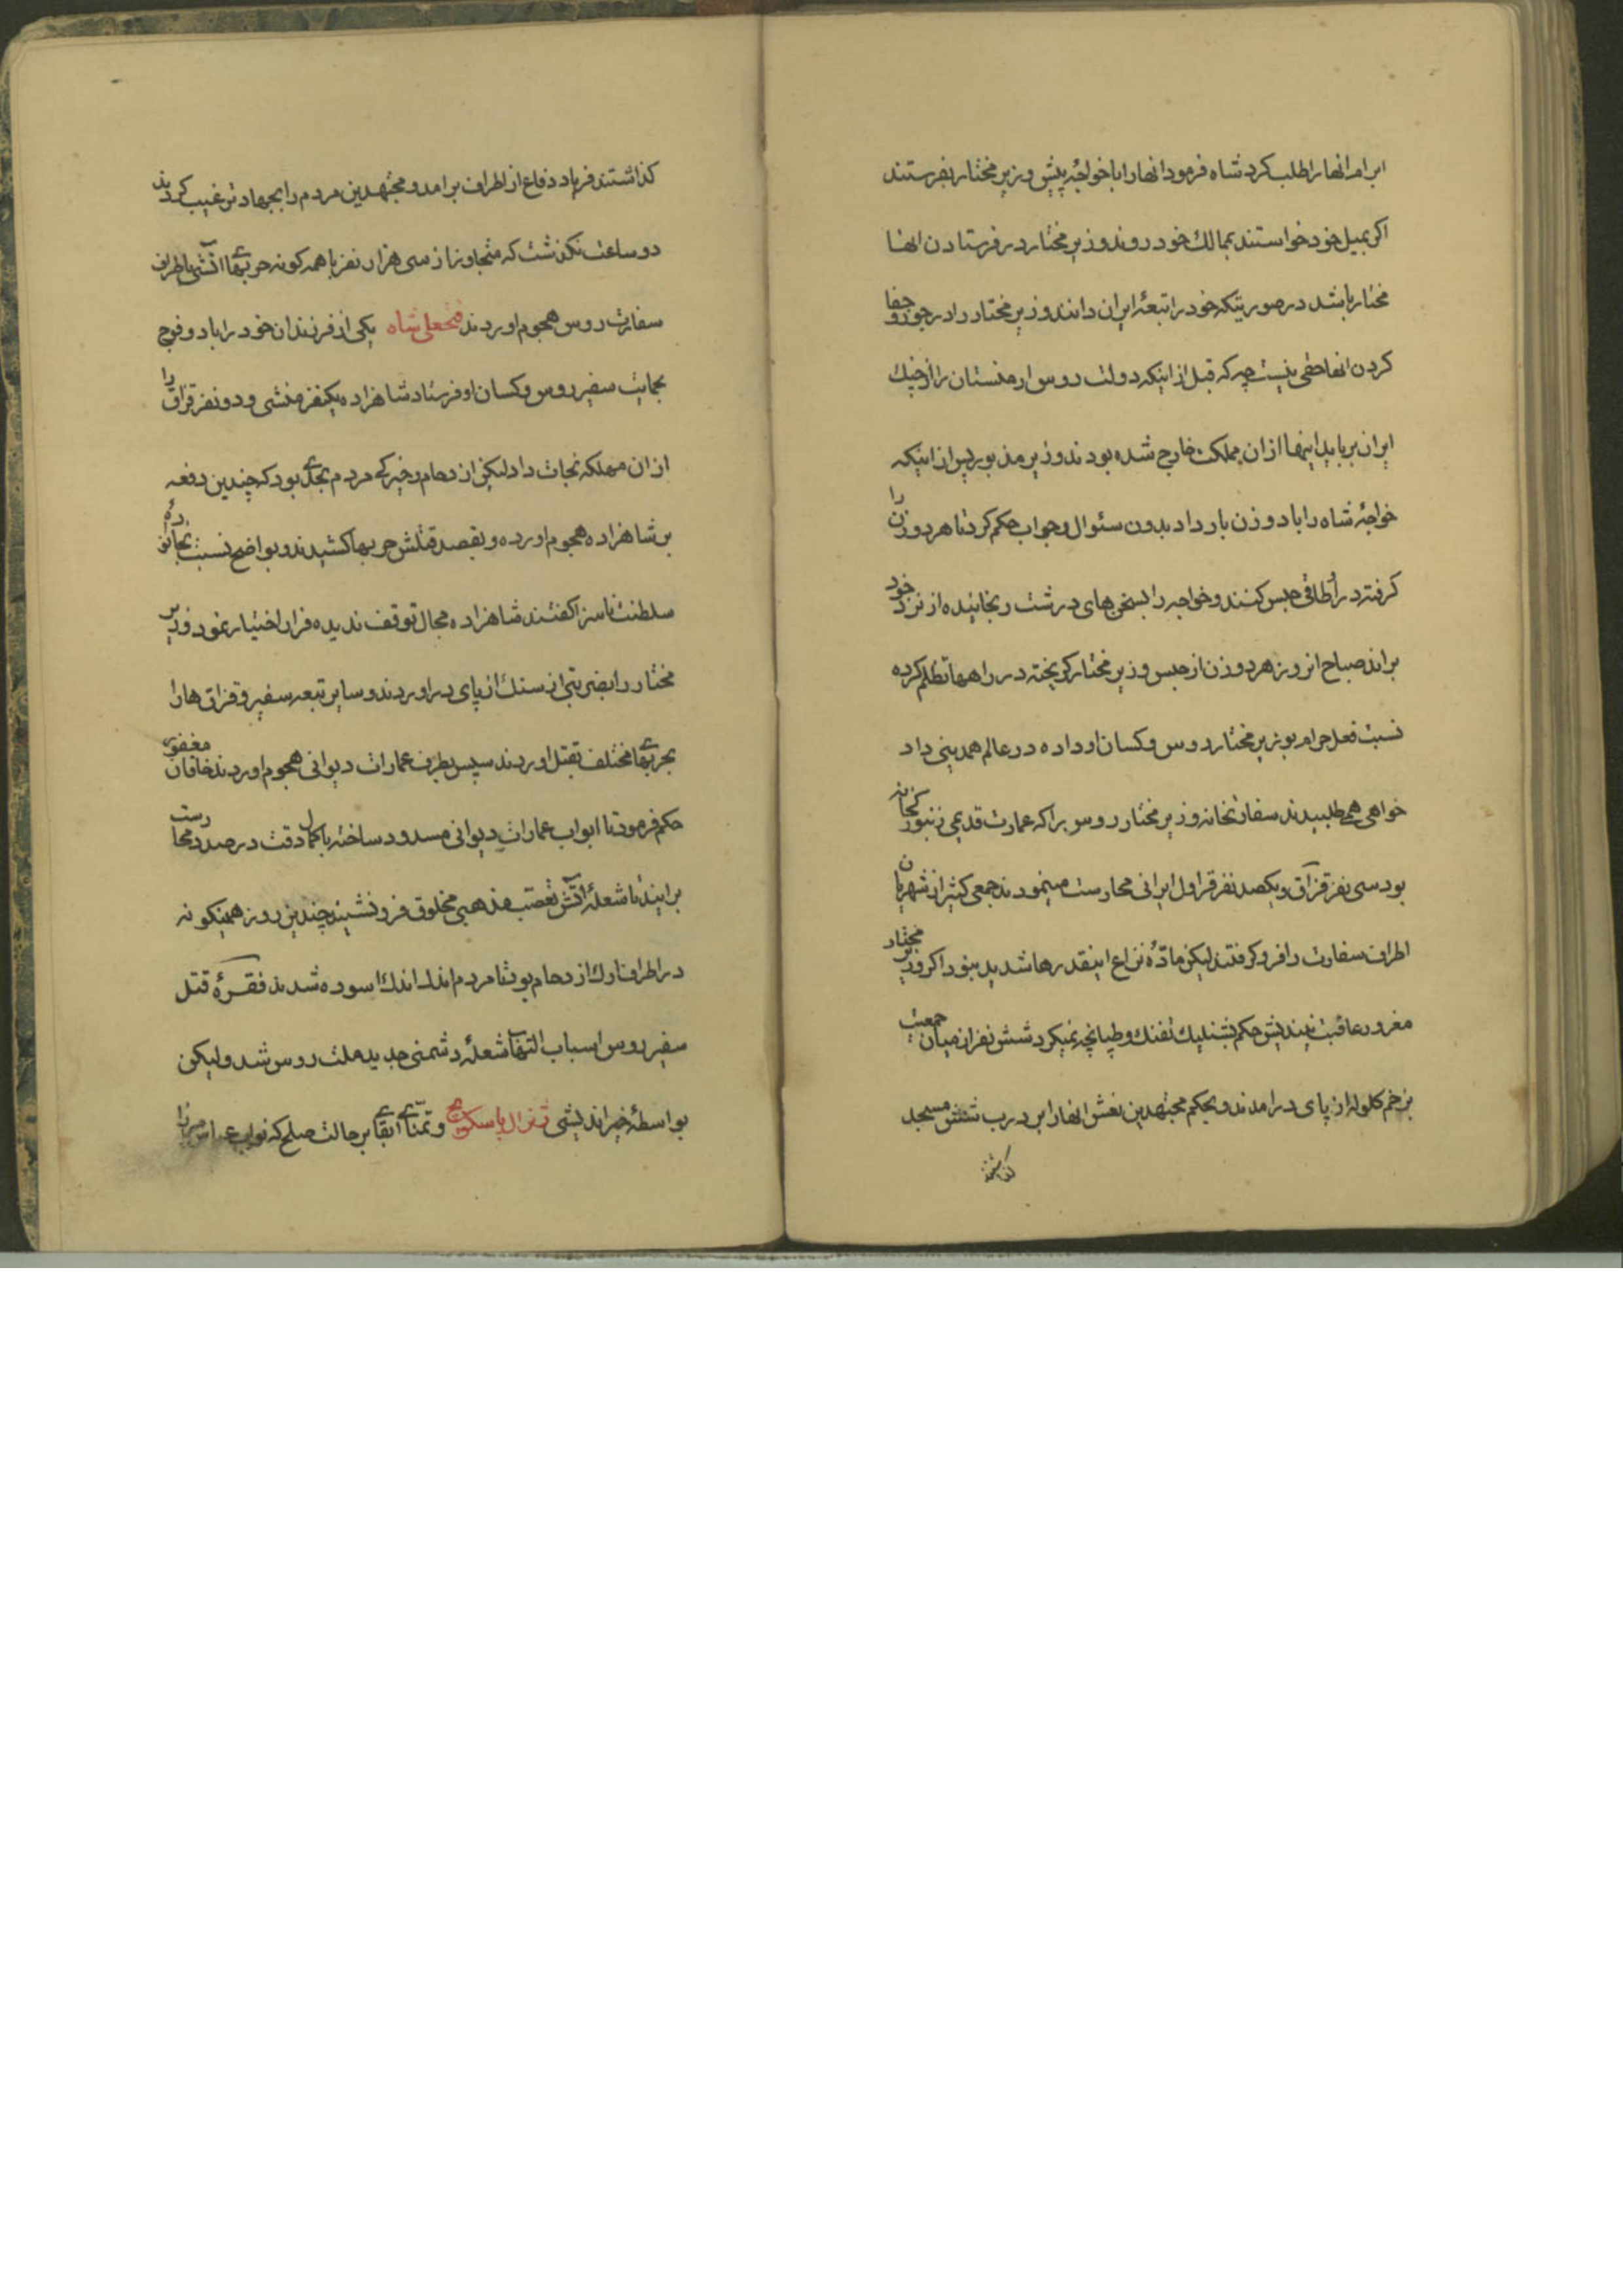 ابرام انها را طلب کرد شاه فرمود انها را با خواجهٔ پیش وزیر مختار بفرستند
اکر بمیل خود خواستند بممالک خود روند وزیر مختار در فرستادن انها
مختار باشد در صورتیکه خود را تبعهٔ ایران دانند وزیر مختار را در جور و جفا
کردن انها حقی نیست چه که قبل از اینکه دولت روس ارمنستان را از چنک
ایران برباید اینها از ان مملکت خارج شده بودند وزیر مذبور پس از اینکه
خواجهٔ شاه را با دو زن بار داد بدون سئوال و جواب حکم کرد تا هر دو زن را
کرفته در اُطاقی حبس کنند و خواجه را بسخن های درشت رنجانیده از نزد خود
براند صباح انروز هر دو زن از حبس وزیر مختار کریخته در راهها تظلم کرده
نسبت فعل حرام بوزیر مختار روس و کسان او داده در عالم همدینی داد
خواهی همی طلبیدند سفارتخانه وزیر مختار روس را که عمارت قدیمی زنبورکخانه
بود سی نفر قزاق و یکصد نفر قراول ایرانی محارست مینمودند جمعی کثیر از شهریان
اطراف سفارت را فرو کرفتند لیکن مادّهٔ نزاع اینقدرها شدید نبود اکر وزیر مختار
مغرور عاقبت نیندیش حکم بشنلیک تفنک و طپانچه نمیکرد شش نفر از میان جمعیت
بزخم کلوله از پای درامدند و بحکم مجتهدین نعش انها را بر درب شش مسجد
کذاشتند
کذاشتند فریاد دفاع از اطراف برامد و مجتهدین مردم را بجهاد ترغیب کردند
دو ساعت نکذشت که متجاوز از سی هزار نفر با همه کونه حربهای اتشی باطراف
سفارت روس هجوم اوردند فتحعلی شاه یکی از فرزندان خود را با دو فوج
بحمایت سفیر روس و کسان او فرستاد شاهزاده یکنفر منشی و دو نفر قزاق را
از ان مهلکه نجات داد لیکن ازدحام و خیرکی مردم بحدّی بود که چندین دفعه
بر شاهزاده هجوم اورده و بقصد قتلش حربها کشیدند و بواضح نسبت بخانوادهٔ
سلطنت ناسزا کفتند شاهزاده مجال توقف ندیده فرار اختیار نمود وزیر
مختار را بضربتی از سنک از پای دراوردند و سایر تبعه سفیر و قزاق ها را
بحربهای مختلف بقتل اوردند سپس بطرف عمارات دیوانی هجوم اوردند خاقان مغفور
حکم فرمود تا ابواب عمارات دیوانی مسدود ساخته با کمال دقت درصدد محارست
برایند تا شعلهٔ اتش تعصب مذهبی مخلوق فرو نشیند چندین روز همینکونه
در اطراف ارک ازدحام بود تا مردم اندک اندک اسوده شدند فقرهٔ قتل
سفیر روس اسباب التهاب شعلهٔ دشمنی جدید ملت روس شد ولیکن
بواسطهٔ خیراندیشی ژنرال پاسکویچ و تمنّای ابقای بر حالت صلح که نواب عباس میرزا